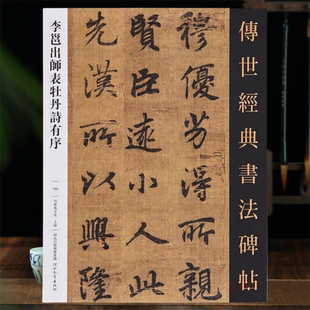 傳世經典書法碑帖
穆優劣得所親
賢臣遠小人此
先漢所以興隆
李邕出師表牡丹詩有序